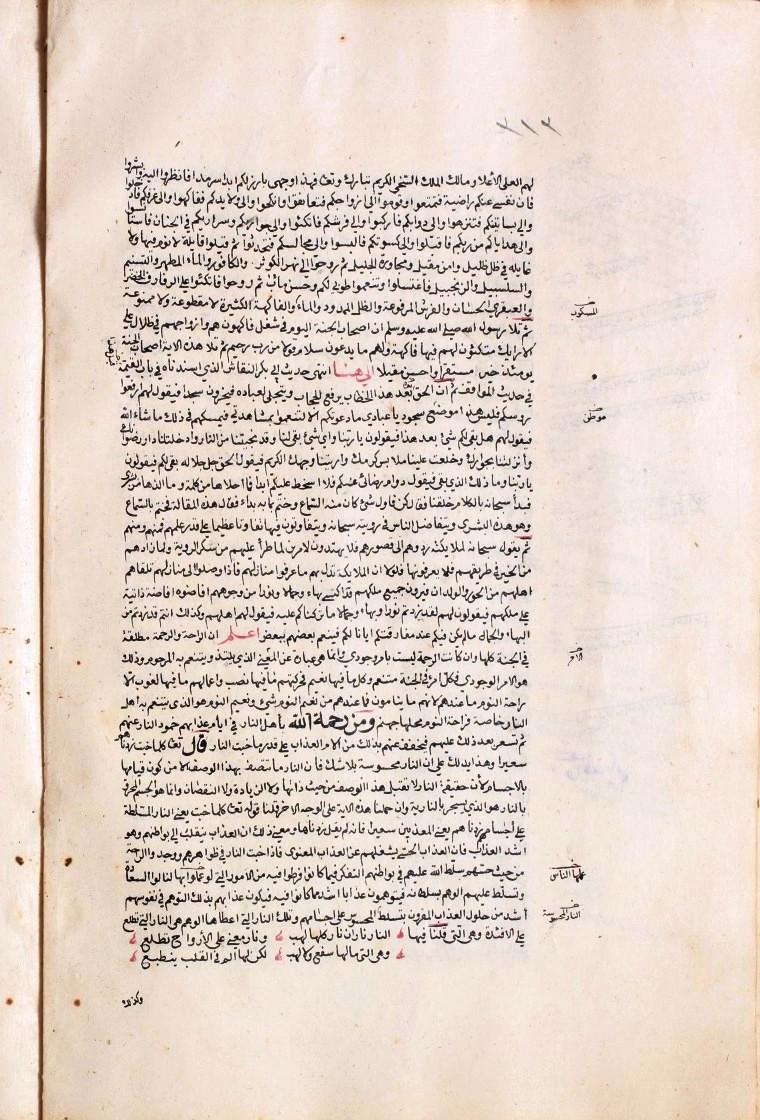 ٣١٣
لهم العلى الأعلا ومالك الملك السخى الكريم تبارك وتعا فهذا وجهى بارز لكم ابدا سرمدا فانظروا اليه وابشروا
فان نفسى عنكم راضية فتمتعوا وقوموا الى ازواجكم فتعانقوا وانكحوا والى ولايدكم ففاكهوا والى غرفكم فادخلوا
والى بساتينكم فتنزهوا والى دوابكم فاركبوا والى فرشكم فاتكئوا والى جواريكم وسراريكم فى الجنان فاستأنسوا
والى هداياكم من ربكم فاقبلوا والى كسوتكم فالبسوا والى مجالسكم فتحدثوا ثم قيلوا قايلة لا نوم فيها ولا
غايله فى ظل ظليل وامن مقيل ومجاورة الجليل ثم روحوا الى نهر الكوثر والكافور والماء المطهر والتسنيم
والسلسبيل والزنجبيل فاغتسلوا وتنعموا طوبى لكم وحسن مآب ثم روحوا فاتكئوا على الرفارف الخضر
والعبقرى الحسان والفرش المرفوعة والظل الممدود والماء المسكوب والفاكهة الكثيرة لا مقطوعة ولا ممنوعة
ثم تلا رسول الله صلى الله عليه وسلم ان اصحاب الجنة اليوم فى شغل فاكهون هم وازواجهم فى ظلال على
الارايك متكئون لهم فيها فاكهة ولهم ما يدعون سلام قولا من رب رحيم ثم تلا هذه الاية اصحاب الجنة
يومئذ خير مستقرا واحسن مقيلا الى هنا انتهى حديث ابى بكر النقاش الذى اسندناه فى باب القيمة
فى حديث المواقف ثم ان الحق تعا بعد هذا الخطاب يرفع الحجاب ويتجلى لعباده فيخرون سجدا فيقول لهم ارفعوا
رؤسكم فليس هذا موضع سجود يا عبادى ما دعوتكم الا لتنعموا بمشاهدتى فيمسكهم فى ذلك ما شاء الله
فيقول لهم هل بقى لكم شئ بعد هذا فيقولون يا ربنا واى شئ بقى لنا وقد نجيتنا من النار وادخلتنا دار رضوانك
وانزلتنا بجوارك وخلعت علينا ملابس كرمك واريتنا وجهك الكريم فيقول الحق جل جلاله بقى لكم فيقولون
يا ربنا وما ذلك الذى بقى فيقول دوام رضائى عنكم فلا اسخط عليكم ابدا فما احلاها من كلمة وما الذها من بشرى
فبدأ سبحانه بالكلام خلقنا فقال كن فاول شئ كان منه السماع وختم بما به بداء فقال هذه المقالة فختم بالسماع
وهو هذه البشرى ويتفاضل الناس فى رويته سبحانه ويتفاوتون فيها تفاوتا عظيما على قدر علمهم فمنهم ومنهم
ثم يقول سبحانه لملائكته ردوهم الى قصورهم فلا يهتدون لامرين لما طرأ عليهم من سكر الروية ولما زادهم
من الخير فى طريقهم فلا يعرفونها فلولا ان الملائكة تدل بهم ما عرفوا منازلهم فاذا وصلوا الى منازلهم تلقاهم
اهلهم من الحور والولدان فيرون جميع ملكهم قد اكتسى بهاء وجمالا ونورا من وجوههم افاضوه افاضة ذاتية
على ملكهم فيقولون لهم لقد زدتم نورا وبهاء وجمالا ما تركناكم عليه فيقول لهم اهلهم وكذلك انتم قد زدتم من
البهاء والجمال ما لم يكن فيكم عند مفارقتكم ايانا لكم فينعم بعضهم ببعض اعلم ان الراحة والرحمة مطلقة
فى الجنة كلها وان كانت الرحمة ليست بامر وجودى وانما هى عبارة عن المعنى الذى يلتذ ويتنعم به المرحوم وذلك
هو الامر الوجودى فكل من فى الجنة متنعم وكل ما فيها نعيم فحركتهم ما فيها نصب واعمالهم ما فيها لغوب الا
راحة النوم ما عندهم لانهم ما ينامون فما عندهم من نعيم النوم شئ ونعيم النوم هو الذى يتنعم به اهل
النار خاصة فراحة النوم محلها جهنم ومن رحمة الله باهل النار فى ايام عذابهم خمود النار عنهم
ثم تسعر بعد ذلك عليهم فيخفف عنهم بذلك من الام العذاب على قدر ما خبت النار قال تعا كلما خبت زدناهم
سعيرا وهذا يدلك على ان النار محسوسة بلا شك فان النار ما تتصف بهذا الوصف الا من كون قيامها
بالاجسام لان حقيقة النار لا تقبل هذا الوصف من حيث ذاتها ولا الزيادة ولا النقصان وانما هو الجسم المحرق
بالنار هو الذى يسجر بالنارية وان حملنا هذه الاية على الوجه الاخر قلنا قوله تعا كلما خبت يعنى النار المسلطة
على اجسامهم زدناهم يعنى المعذبين سعيرا فانه لم يقل زدناها ومعنى ذلك ان العذاب ينقلب الى بواطنهم وهو
اشد العذاب فان العذاب الحسى يشغلهم عن العذاب المعنوى فاذا خبت النار فى ظواهرهم ووجدوا الراحة
من حيث حسهم سلط الله عليهم فى بواطنهم التفكر فيما كانوا فرطوا فيه من الامور التى لو عملوا بها لنالوا السعادة
وتسلط عليهم الوهم بسلطانه فيتوهمون عذابا اشد مما كانوا فيه فيكون عذابهم بذلك التوهم فى نفوسهم
اشد من حلول العذاب المقرون بتسلط المحسوس على اجسامهم وتلك النار التى اعطاها الوهم هى النار التى تطلع
على الافئدة وهى التى قلنا فيها النار ناران نار كلها لهب ونار معنى على الأرواح تطلع
وهى التى مالها سفع ولا لهب لكن لها الم فى القلب ينطبع
وكذلك
المسكوب
موطن
الامر
عملها الناس
النار المحسوسة